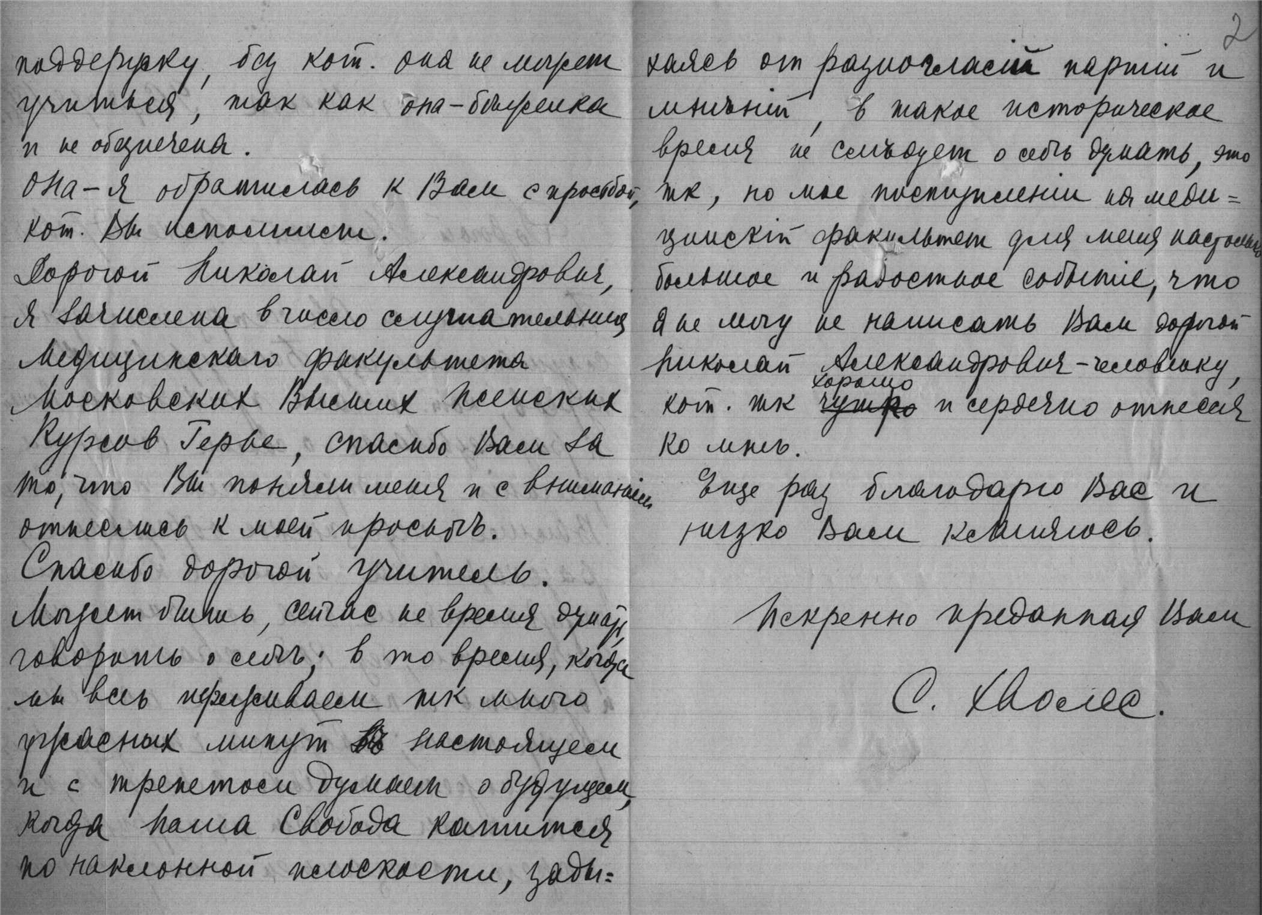 2
поддержку, без кот. она не может
учиться, так как она – беженка
и не обезпечена.
Она – я обратилась к Вам с просьбой,
кот. Вы исполнили.
Дорогой Николай Александрович,
я зачислена в число слушательниц
Медицинскаго факультета
Московских Высших Женских
Курсов Герье, спасибо Вам за
то, что Вы поняли меня и с вниманием
отнеслись к моей просьбѣ.
Спасибо дорогой учитель.
Может быть, сейчас не время думать,
говорить о себѣ; в то время, когда
мы всѣ переживаем тк много
ужасных минут в настоящем
и с трепетом думаем о будущем,
когда наша Свобода катится
по наклонной плоскости, зады=
хаясь от разногласій партій и
мнѣній, в такое историческое
время не слѣдует о себѣ думать, это
тк, но мое поступленіи на меди=
цинскій факультет для меня настолько
большое и радостное событіе, что
я не могу не написать Вам дорогой
Николай Александрович – человѣку,
кот. тк чутко хорошо и сердечно отнесся
ко мнѣ.
Еще раз благодарю Вас и
низко Вам кланяюсь.
Искренно преданная Вам
С. Хволес.